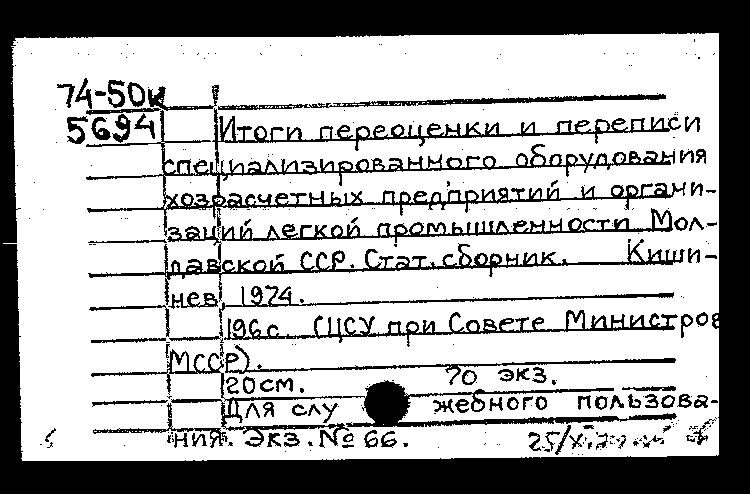 74-50к
5694 Итоги переоценки и переписи
специализированного оборудования
хозрасчетных предприятий и органи-
заций легкой промышленности Мол-
давской ССР. Стат. сборник. Киши-
нев, 1974.
196с. (ЦСУ при Совете Министров
МССР).
20см. 70 экз.
Для служебного пользова-
ния. Экз. № 66.